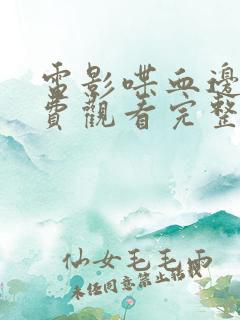 電影喋血邊
費觀看完整
仙女毛毛雨
未经同意禁止转载